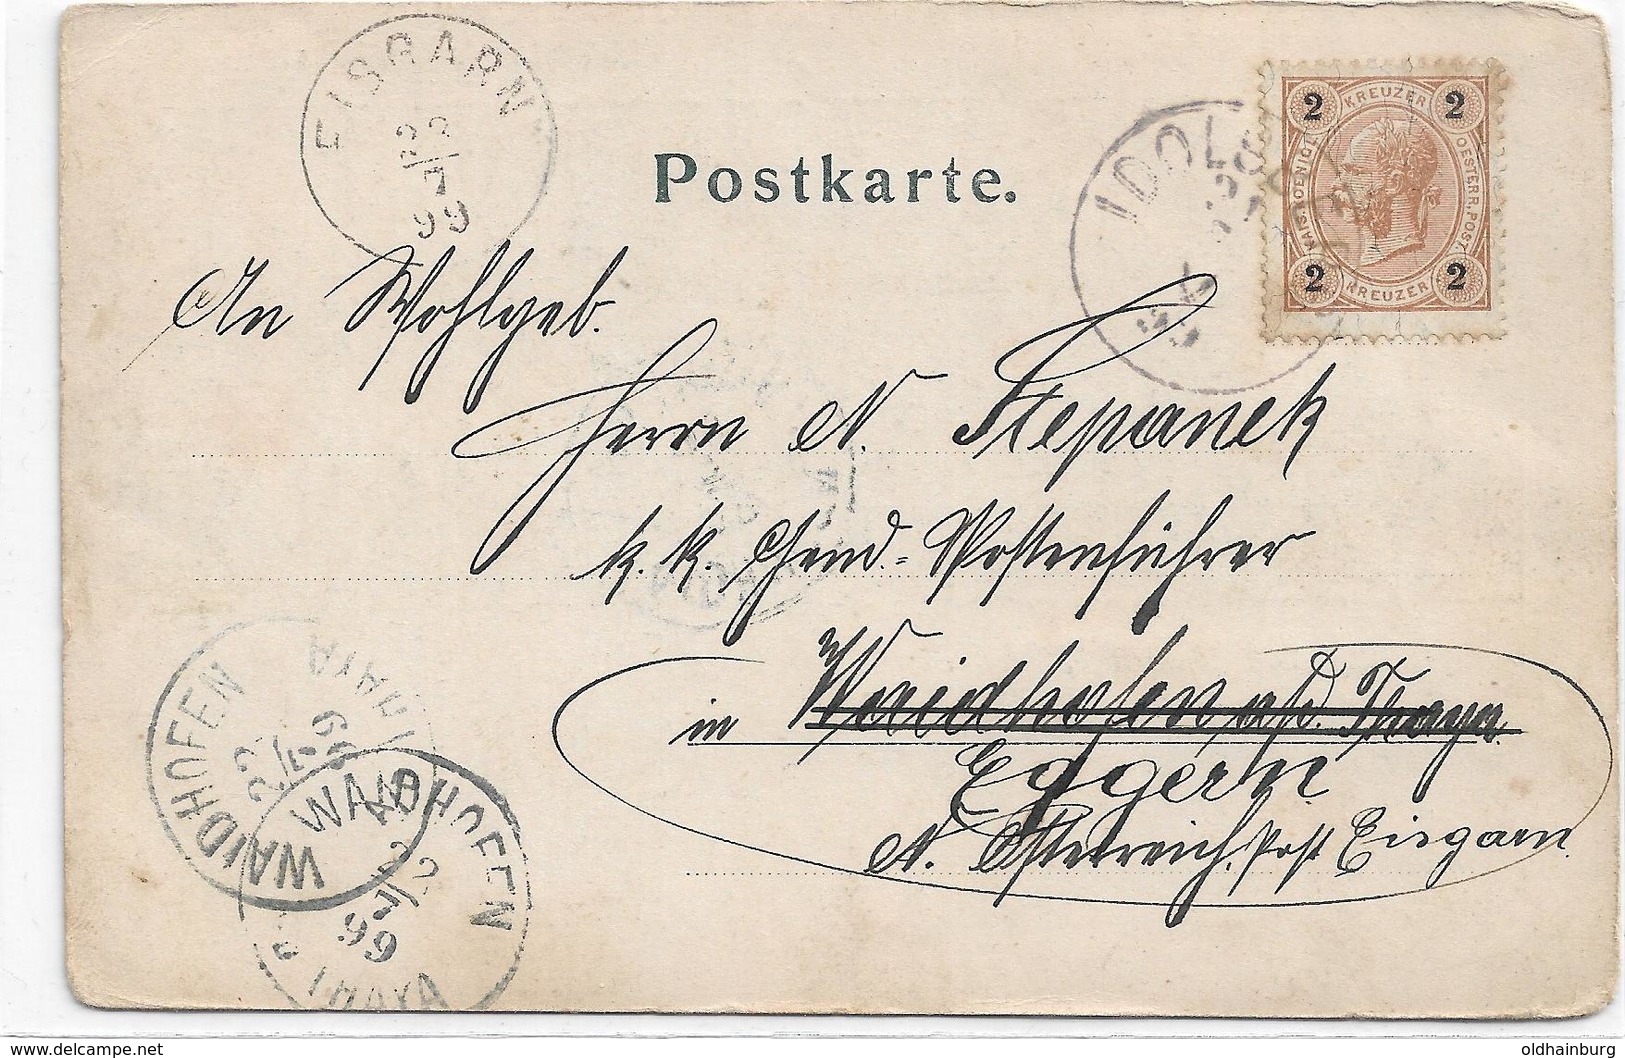 EISGARN
22
7
99
Postkarte.
2 KREUZER 2
KAIS. KOENIGL. OESTERR. POST.
2 KREUZER 2
An Wohlgeb.
Herrn N. Stepanek
k. k. Gend.=Postenführer
in Waidhofen a/d. Thaya
Eggern
N. Österreich. Post Eisgarn
WAIDHOFEN
THAYA
22
7
99
WAIDHOFEN
THAYA
22
7
99
www.delcampe.net
oldhainburg